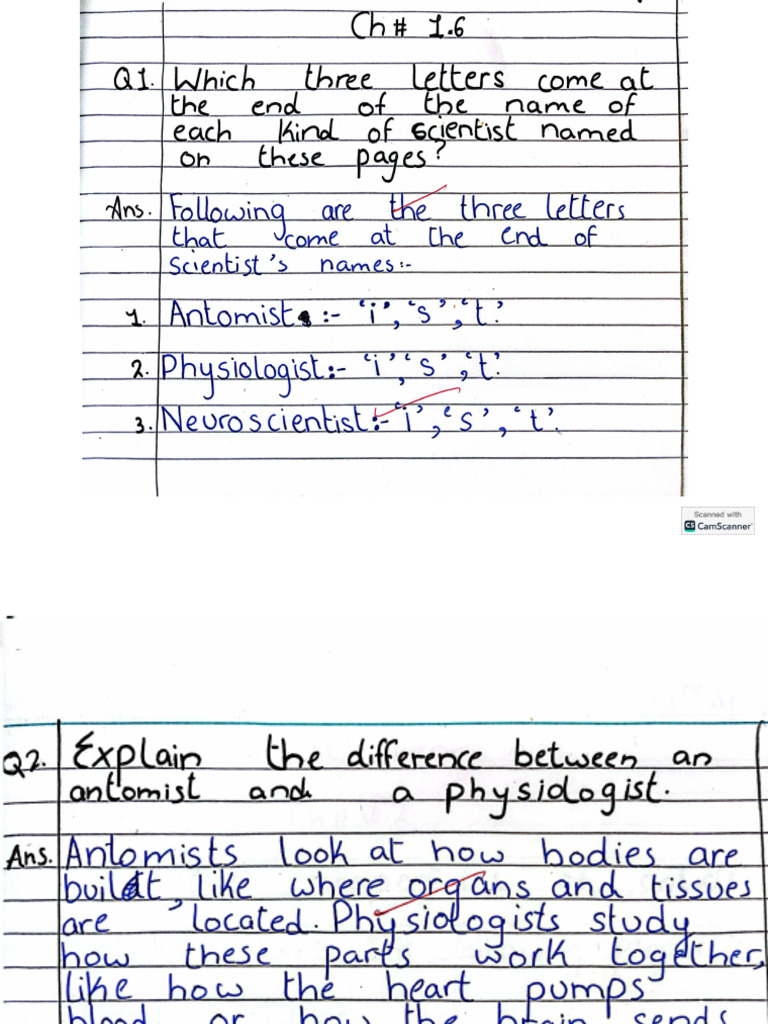 Ch# 1.6
Q1. Which three letters come at
the end of the name of
each kind of scientist named
on these pages?
Ans. Following are the three letters
that come at the end of
scientist's names:-
1. Antomist :- 'i', 's', 't'.
2. Physiologist:- 'i', 's', 't'.
3. Neuroscientist:- 'i', 's', 't'.
Scanned with
CS CamScanner
Q2. Explain the difference between an
antomist and a physiologist.
Ans. Antomists look at how bodies are
built, like where organs and tissues
are located. Physiologists study
how these parts work together,
like how the heart pumps
blood or how the brain sends